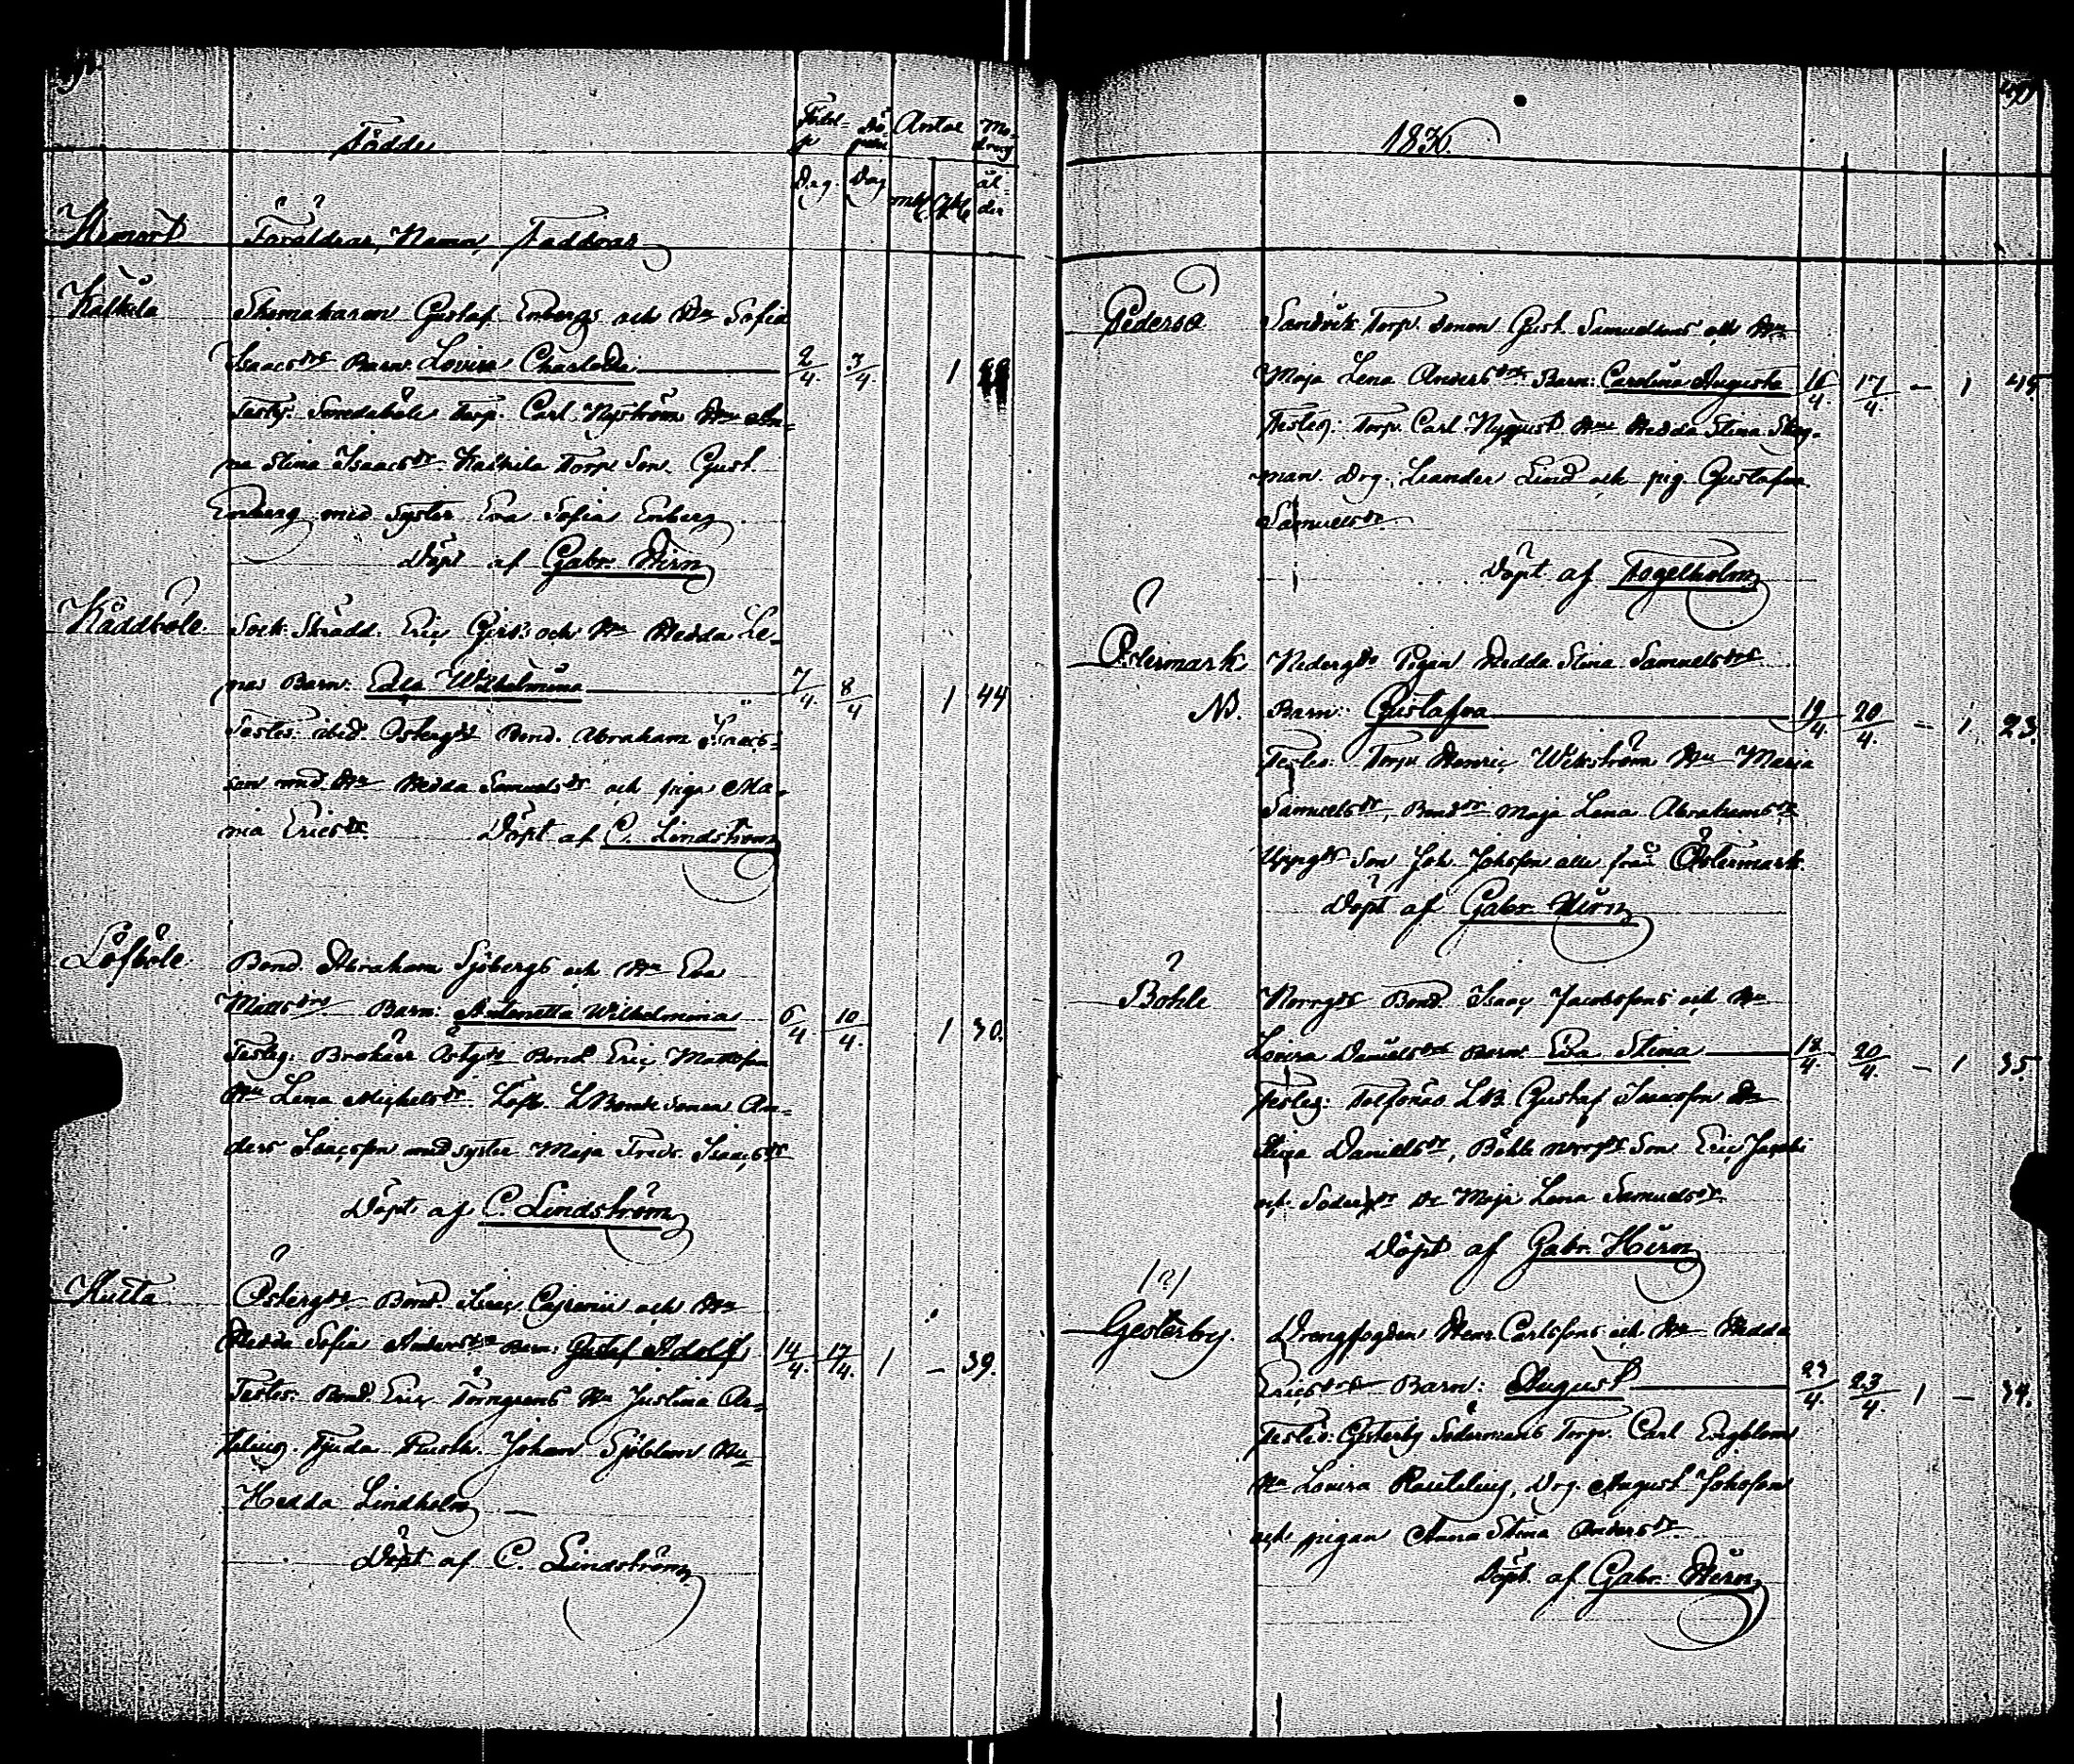 Födde
Födel-
se
Dag.
Dö-
pelse
Dag
Antal
mk
qk
Mo-
drens
ål-
der
Hemort
Föräldrar, Namn, Faddrar
Kalkila
Skomakaren Gustaf Enbergs och Hu Sofia
Isaacsdrs Barn: Lovisa Charlotta 2/4. 3/4. 1
Testes: Smedaböle Torp. Carl Nyström Hu An=
na Stina Isaacsdr Kalkila Torp Son. Gust.
Enberg med Syster Eva Sofia Enberg
Döpt af Gabr. Hirn
Kåddböle.
Sock. Skrädd. Eric Girs: och Hu Hedda Le=
nas Barn: Edla Wilhelmina 7/4. 8/4 1 44
Testes: ibid. Östergds Bond. Abraham Isacs=
son med Hu Hedda Samuelsdr och piga Ma=
ria Ericsdr. Döpt af C. Lindström
Löfböle.
Bond. Abraham Sjöbergs och Hu Eva
Mattsdrs Barn: Antonetta Wilhelmina 6/4 10/4. 1 30.
Testes: Östgds Bond Eric Mattsson
Hu Lena Michelsdr. Löfb. LBonde sonen An=
ders Isacsson med syster Maja Fredr. Isaacsdr
Döpt af C. Lindström
Östergds Bond. Isaac och Hu
Hedda Sofia Andersdrs Barn: Gustaf Adolf 14/4. 17/4. 1 – 39.
Testes: Bond. Eric Törngrens Hu Justina
Johan Sjöblom Hu
Hedda Lindholm
Döpt af C. Lindström
1836.
Pedersö
Sandvik Torp. sonen Gust. Samuelsons och Hu
Maja Lena Andersdrs Barn: Carolina Augusta 16/4. 17/4. – 1
Testes: Torp. Carl Nyquist Hu Hedda Stina Skog-
man. Drg. Leander Lind och pig. Gustafva
Samuelsdr.
Döpt af Fogelholm
Östermark
NB.
Nedergds Pigan Hedda Stina Samuelsdrs
Barn: Gustafva 19/4. 20/4. – 1 23.
Testes: Torp. Henric Wikström Hu Maria
Samuelsdr, Bonddr Maja Lena Abrahamsdr
Uppgds Son Joh. Johsson alla från Östermark.
Döpt af Gabr. Hirn
Böhle
Norrgds Bond. Isaac Jacobssons och Hu
Lovisa Danielsdrs Barn: Eva Stina 18/4. 20/4. – 1 35.
Testes: LB. Gustaf Isacsson Hu
Stina Danielsdr, Böhle Norrgds Son Eric Jacobs
och Södergds Hu Maja Lena Samuelsdr.
Döpt af Gabr. Hirn
/2/
Gesterby.
Drengfogden Henr. Carlssons och Hu Hedda
Ericsdrs Barn: August 23/4. 1 – 34.
Testes: Gesterby Södermans Torp. Carl Engblom
Hu Lovisa Rautelius, Drg. August Johsson
och pigan Anna Stina Andersdr.
Döpt. af Gabr. Hirn